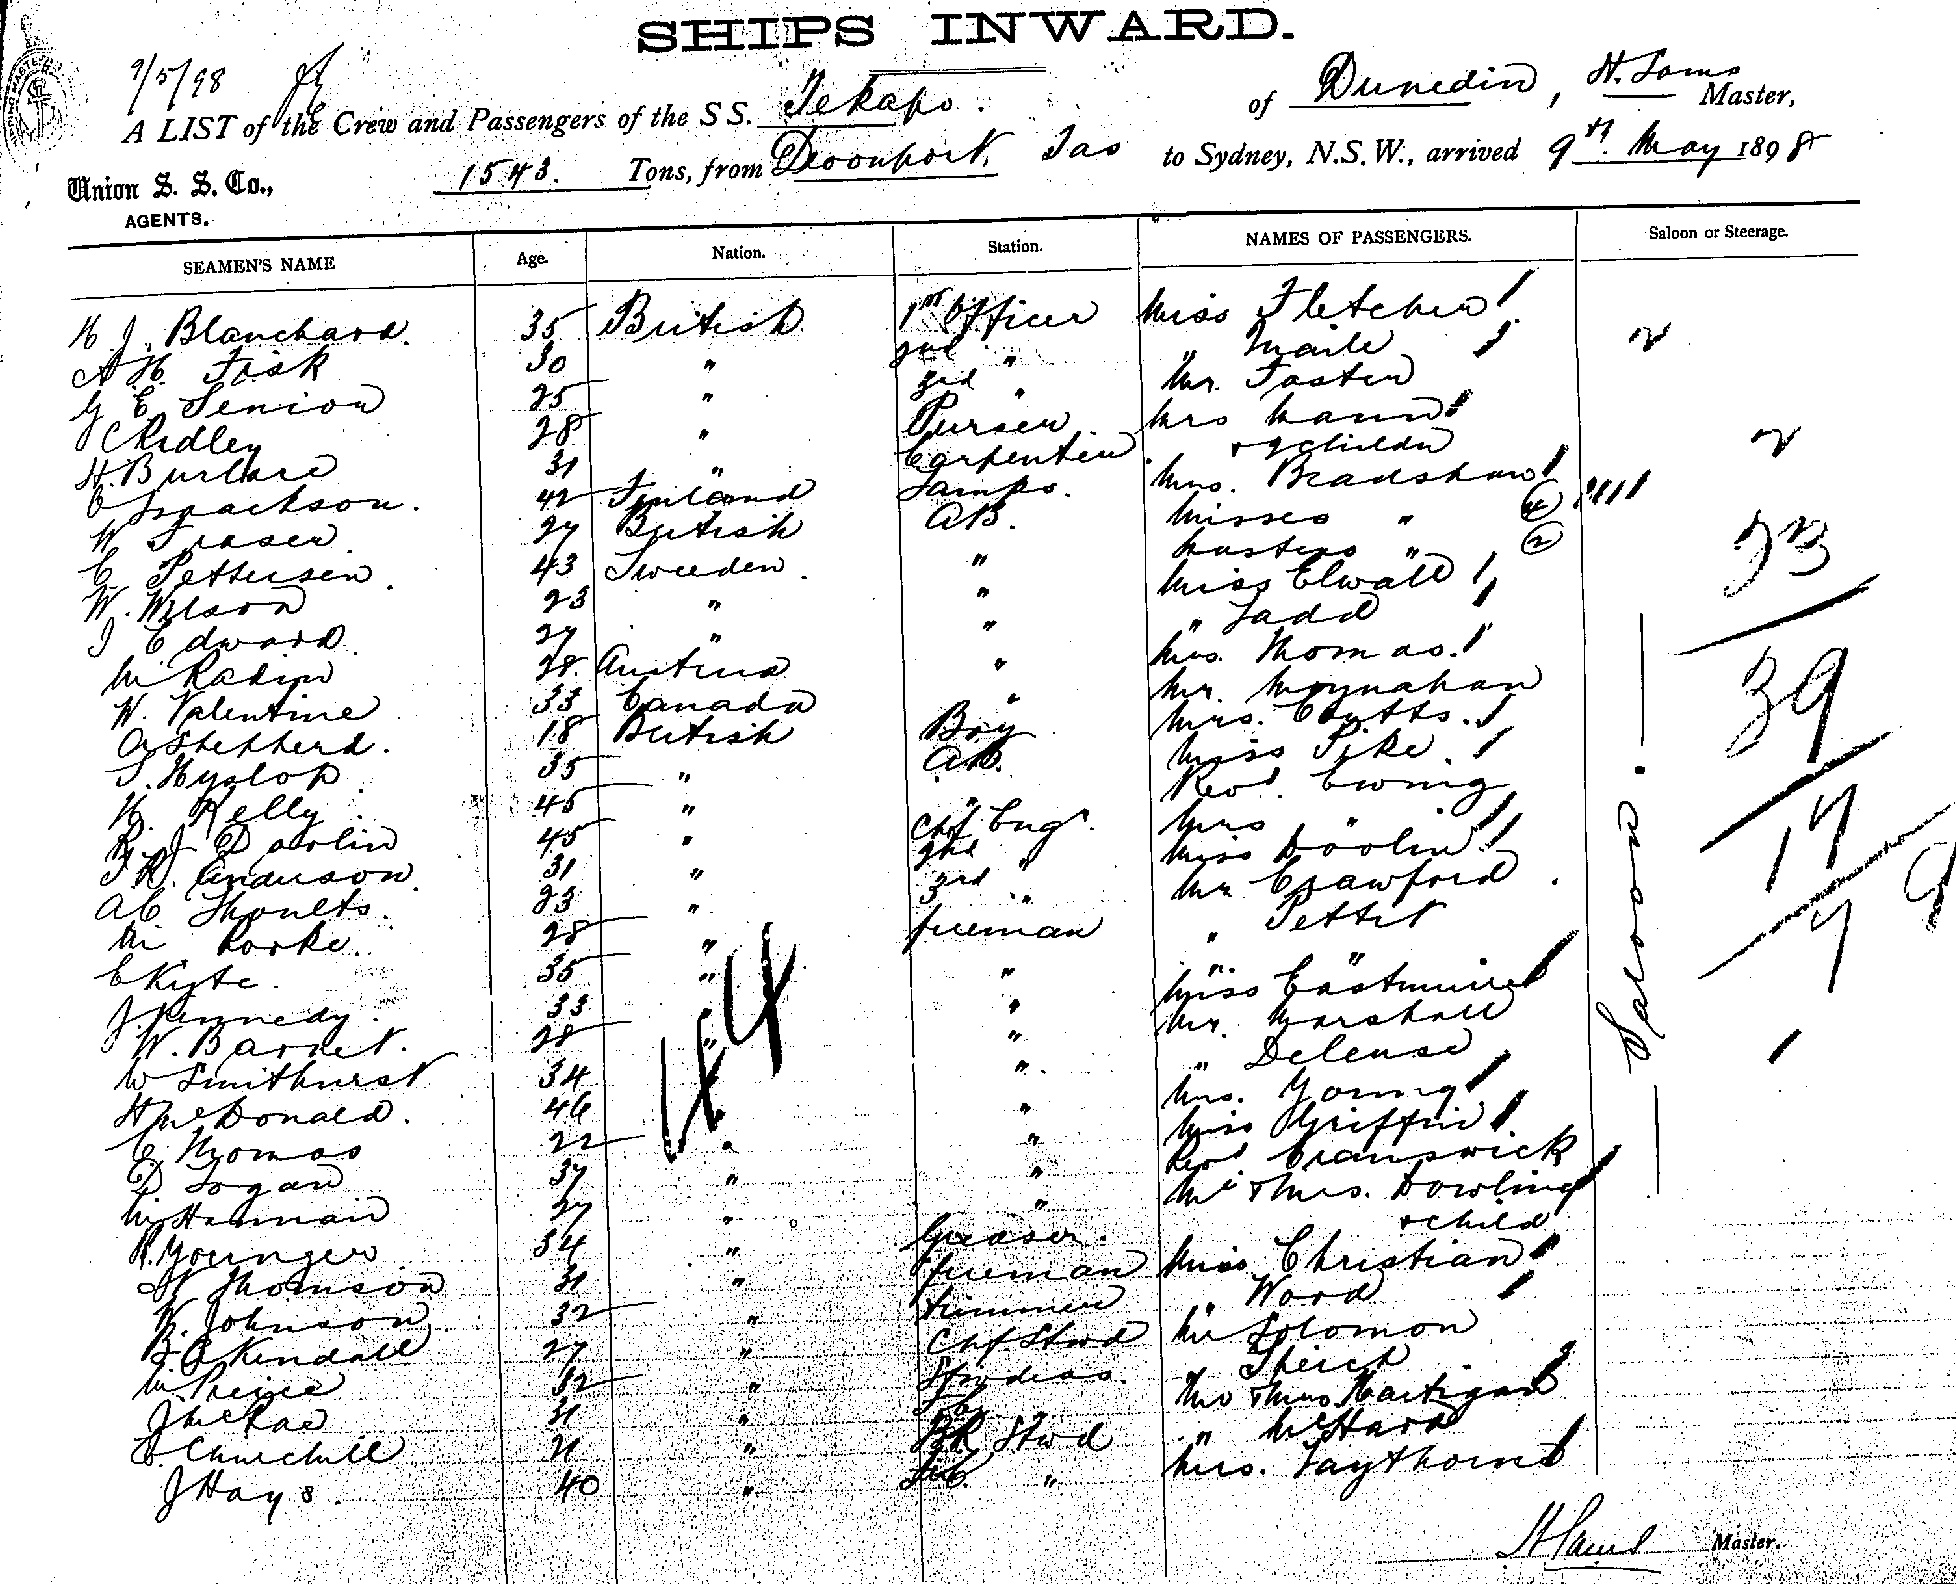 SHIPS INWARD.
9/5/98
A LIST of the Crew and Passengers of the S S. Tekapo of Dunedin, Master,
1543. Tons, from Devonport, Tas to Sydney, N.S.W., arrived 9th May 1898
Union S. S. Co.,
AGENTS.
SEAMEN'S NAME Age. Nation. Station. NAMES OF PASSENGERS. Saloon or Steerage.
J. Blanchard. 35 British 1st Officer Miss Fletcher
A H. Fisk 30 " 2nd " " Maile 2
G E Senior 25 " 3rd " Mr. Foster
C Ridley 28 " Purser Mrs Mann
+ 2 Childn 2
H. Burlace 31 " Carpenter Mrs. Bradshaw
C Isaackson. 42 Finland Lamps. Misses " (4)
W Fraser 27 British AB. Masters " (2)
C Pettersen. 43 Sweeden " Miss Elwall 23
W. Wilson 23 " " " Ladd
J Edward. 27 " " Mrs. Thomas.
M Radin 28. Austria " Mr. Moynahan 39
W. Valentine 33 Canada " Mrs. Coutts.
A Shepherd. 18 British Boy Miss Pike
T. Hyslop 35 " AB. Revd. Ewing
Kelly 45 " " Mrs "
R. J Darlin 45 " Chf Engr. Miss Doolin 17
J R. Anderson 31 " 2nd " Mr Crawford
A C Shoults. 23 " 3rd " " Pettit
M Rorke. 28 " fireman " " 7
C Kyte. 35 " " Miss
J. Kennedy. 33 " " Mr. Marshall
W. Barnet. 28 " " "
W Smithurst 34 " " Mrs. Young
H McDonald. 46 " " Miss Griffin
C Thomas 22 " " Revd Cranswick
D Logan 37 " " Mr + Mrs. Dowling
+ child
M Hannan 27 " "
R. Younger 34 " Greaser. Miss Christian
H Thomson 31 " fireman " Ward
W. Johnson 32 " trimmer Mr Solomon
Kendall 27 " Chf Stwd
M Preice 32 " Stwdess. Mr + Mrs Hartigan
J McRae 21 "
Churchill 21 " BR Stwd Mrs. Taythorne
J Hays. 40 " "
44
Saloon.
Master.